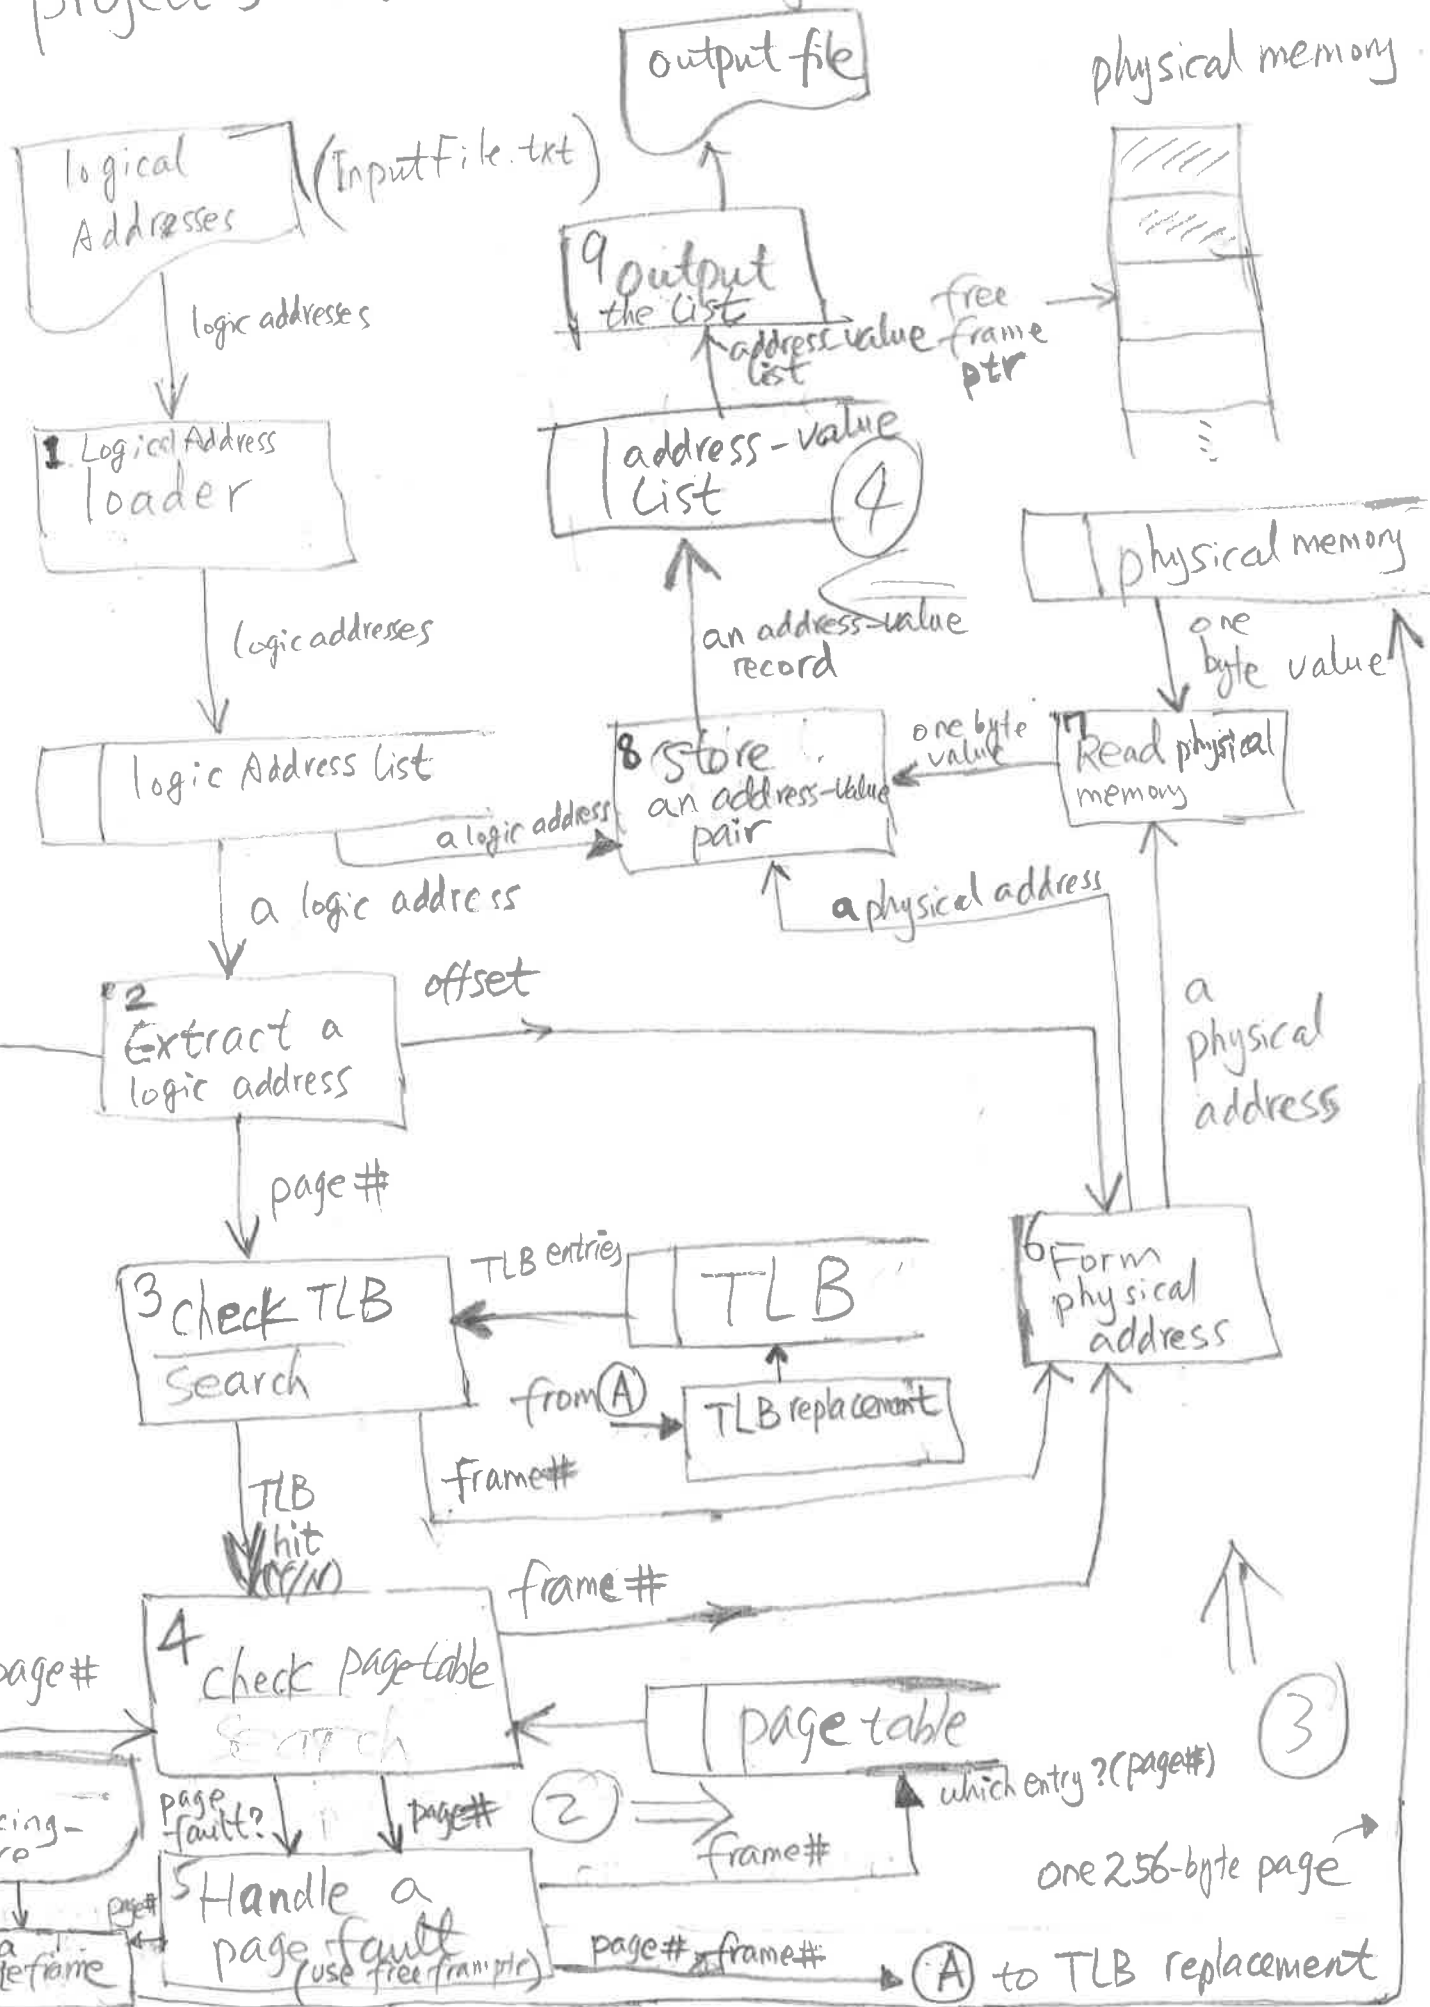 project
output file
physical memory
logical
Addresses
(InputFile.txt)
logic addresses
9 output
the list
address-value
list
free
frame
ptr
1 Logical Address
loader
address-value
List
4
physical memory
logic addresses
an address-value
record
one
byte value
logic Address List
8 store
an address-value
pair
one byte
value
7 Read physical
memory
a logic address
a logic address
a physical address
2
Extract a
logic address
offset
a
physical
address
page#
3 check TLB
search
TLB entries
TLB
6 Form
physical
address
from A
TLB replacement
frame#
TLB
hit
(Y/N)
frame#
page#
4
check page table
search
page table
3
which entry?(page#)
page
fault?
page#
2
frame#
one 256-byte page
5 Handle a
page fault
page#
page#, frame#
A to TLB replacement